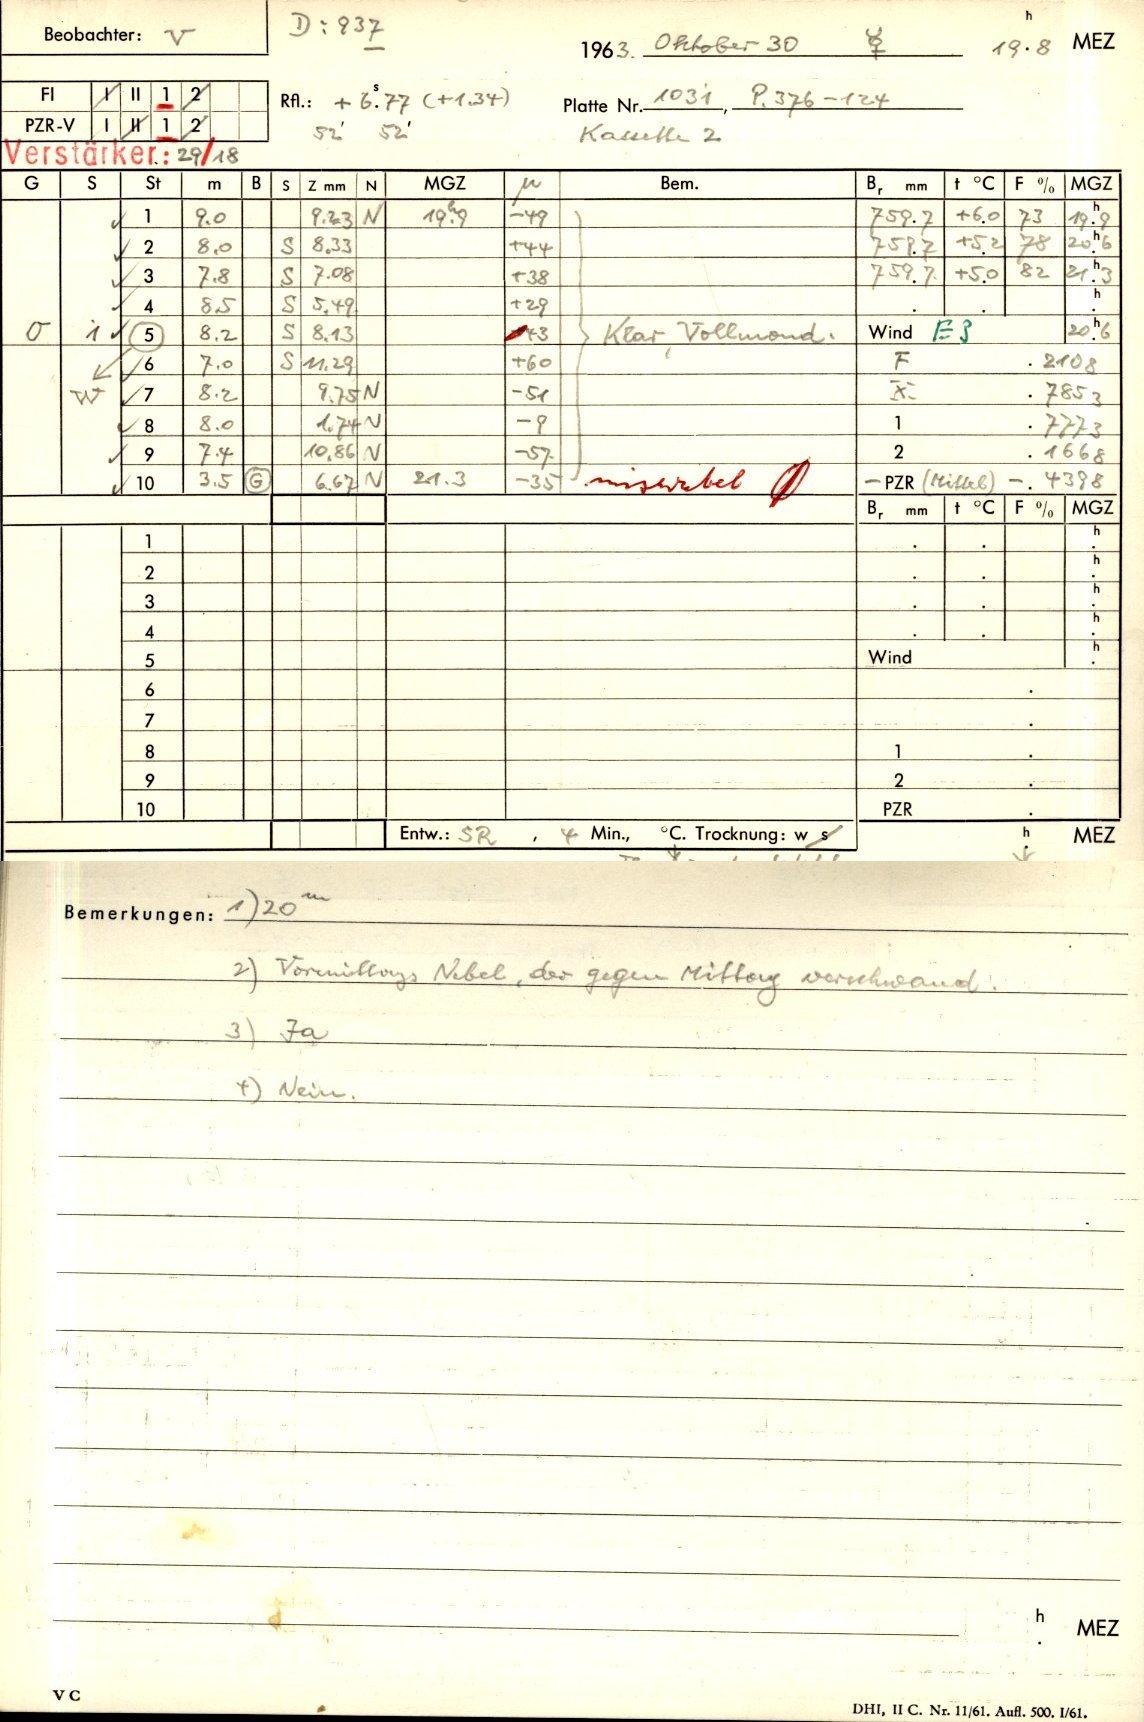 Beobachter: V
D: 937
1963. Oktober 30 ☿ 19.8 h MEZ
FI I II 1 2
PZR-V I II 1 2
Rfl.: + 6.77 s (+1.34)
52 52
Platte Nr. 1031, P. 376-124
Kassette 2
Verstärker.: 29/18
G S St m B S Z mm N MGZ µ Bem. Br mm t °C F % MGZ
1 9.0 9.23 N 19.9 h -49 759.7 +6.0 73 19.9 h
2 8.0 S 8.33 +44 759.7 +5.2 78 20.6 h
3 7.8 S 7.08 +38 759.7 +5.0 82 21.3 h
4 8.5 S 5.49 +29 . . h .
O i 5 8.2 S 8.13 +43 Klar, Vollmond. Wind E 3 20.6 h
6 7.0 S 11.29 +60 F . 2108
W 7 8.2 9.75 N -51 X . 7853
8 8.0 1.74 N -9 1 . 7773
9 7.4 10.86 N -57 2 . 1668
10 3.5 G 6.67 N 21.3 -35 - PZR (Mittel) -. 4398
Br mm t °C F % MGZ
1 . . h .
2 . . h .
3 . . h .
4 . . h .
5 Wind h .
6 .
7 .
8 1 .
9 2 .
10 PZR .
Entw.: SR , 4 Min., °C. Trocknung: w s h . MEZ
Bemerkungen: 1) 20 m
2) Vormittags Nebel, der gegen Mittag verschwand.
3) Ja
4) Nein.
h . MEZ
V C
DHI, II C. Nr. 11/61. Aufl. 500. I/61.